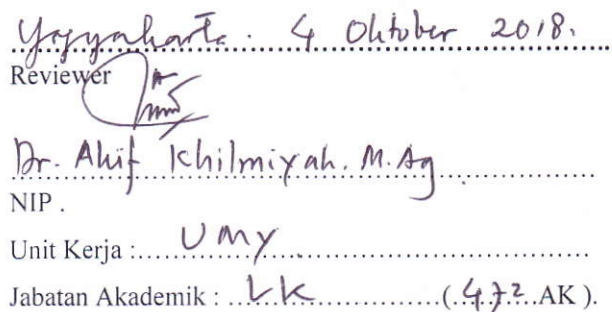 Yogyakarta. 4 Oktober 2018.
Reviewer
Dr. Akif Khilmiyah. M.Ag
NIP .
Unit Kerja :.... UMY
Jabatan Akademik : ..LK..................(.472..AK ).